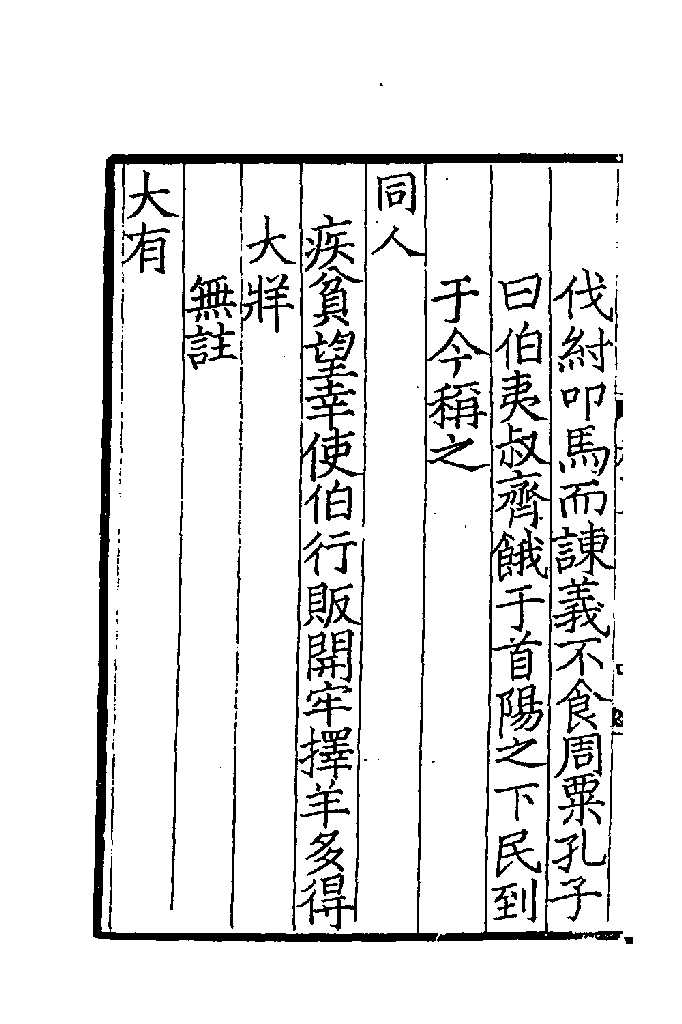 伐紂叩馬而諫義不食周粟孔子
曰伯夷叔齊餓于首陽之下民到
于今稱之
同人
疾貧望幸使伯行販開牢擇羊多得
大牂
無註
大有